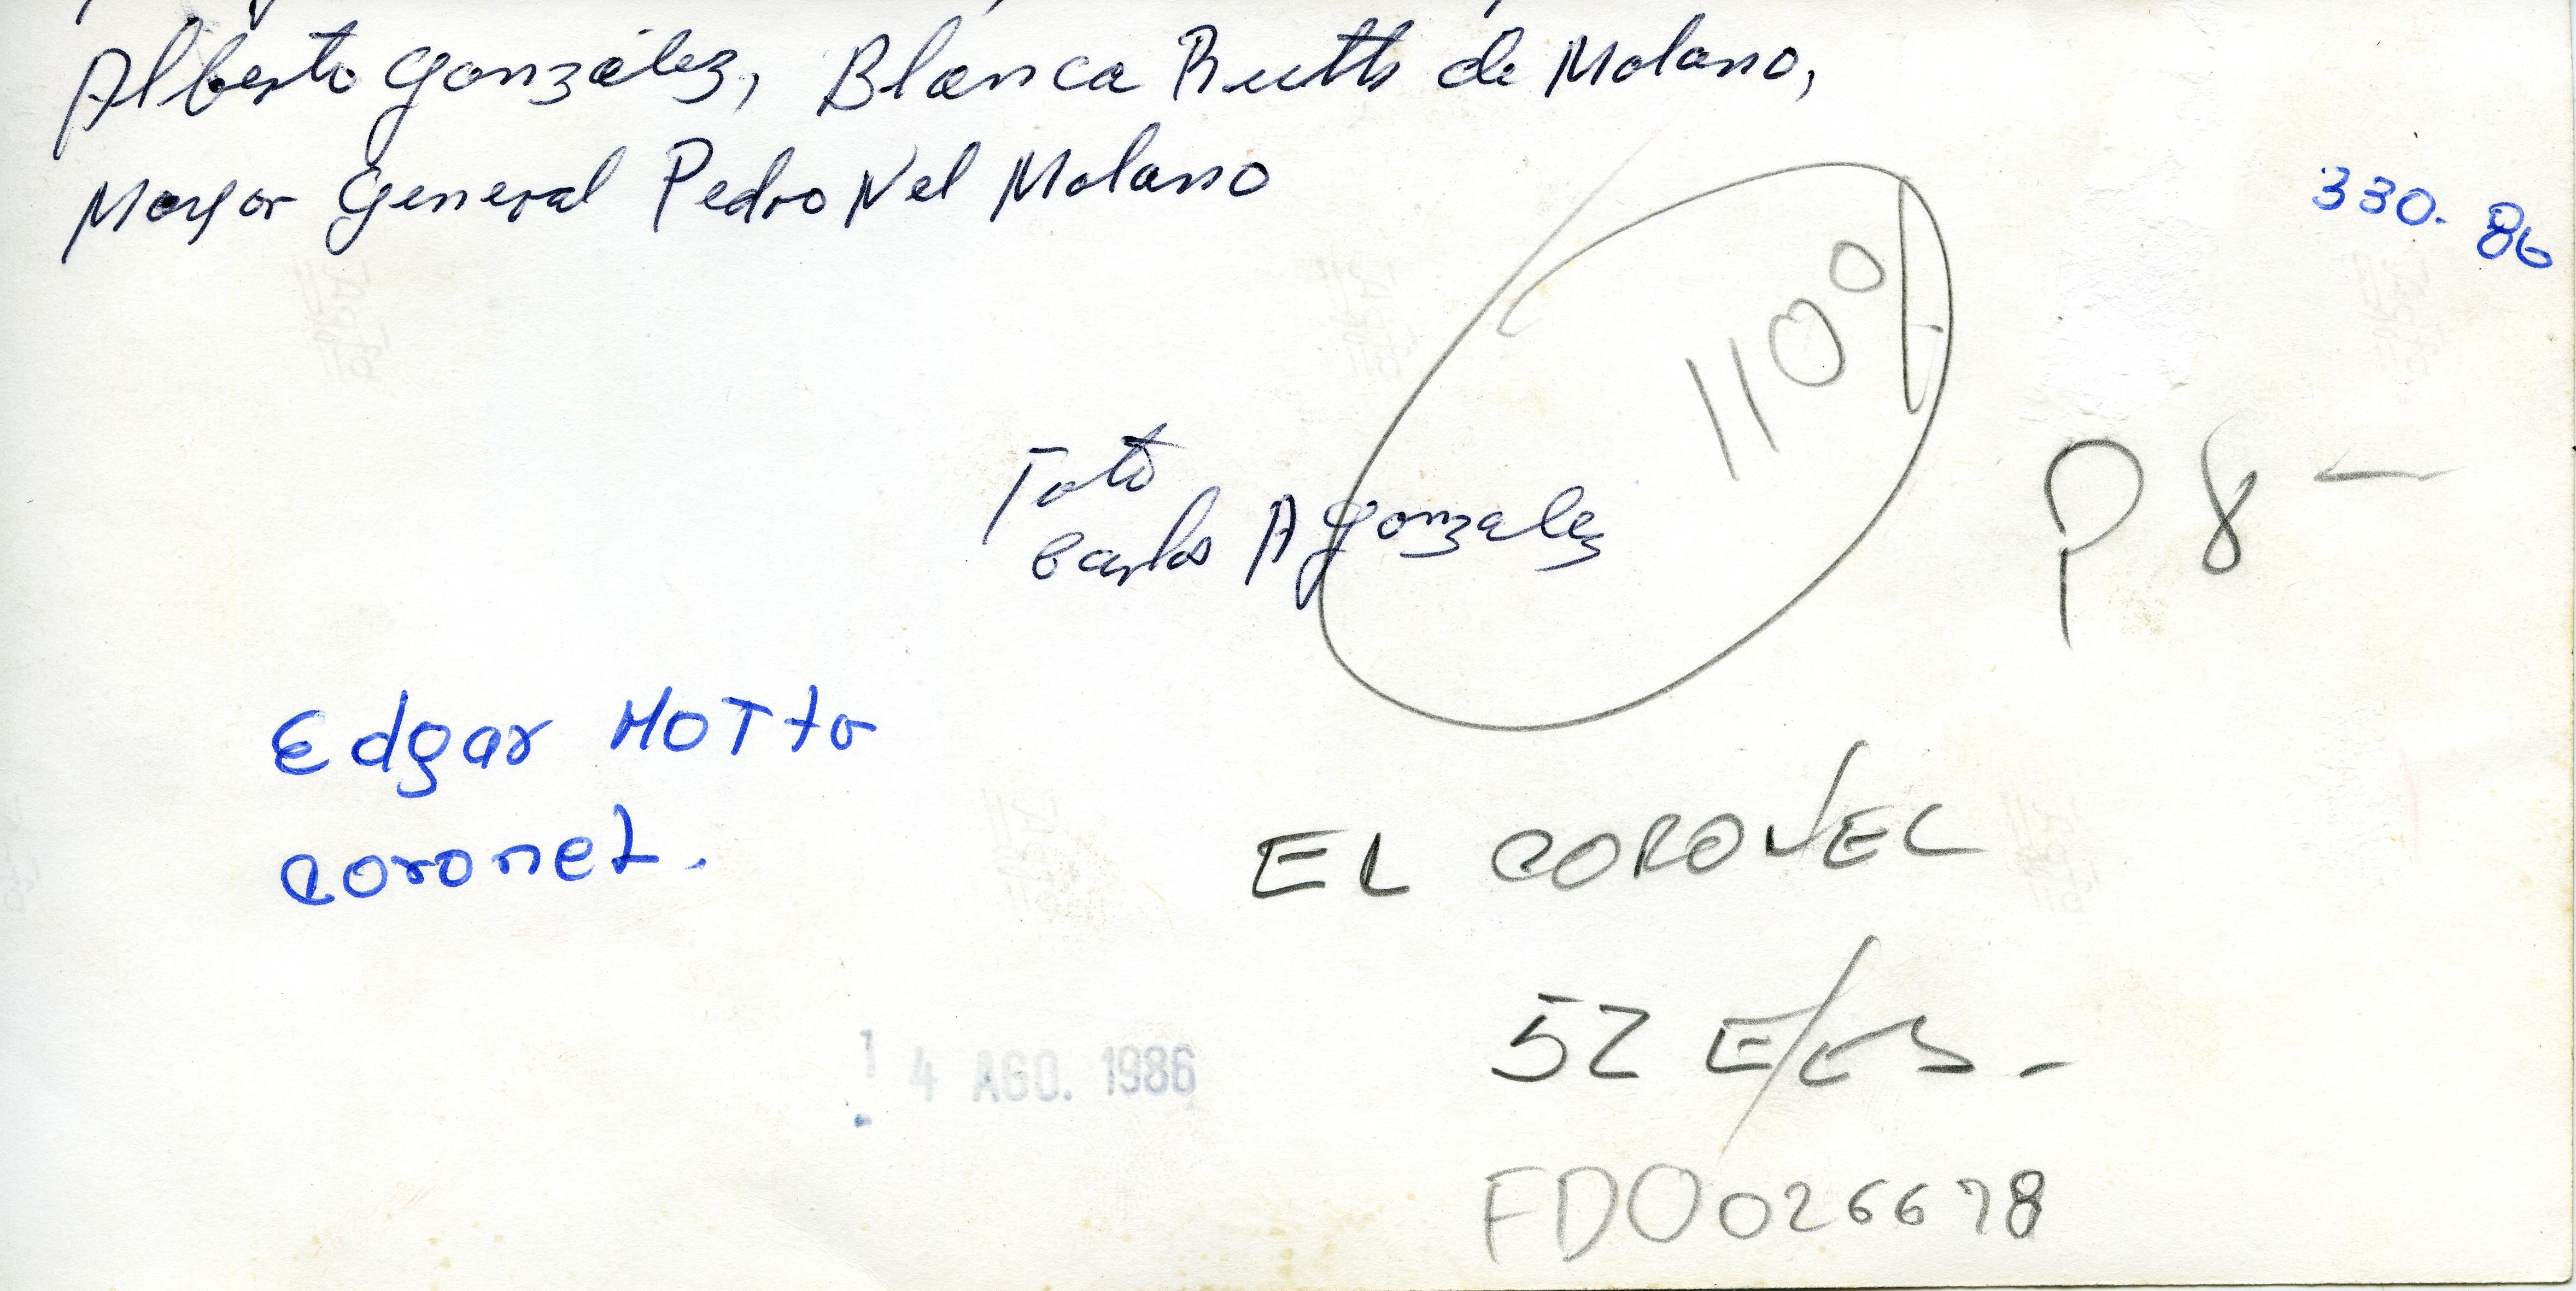 Alberto González, Blanca Ruth de Molano,
Mayor General Pedro Nel Molano
330. 86
1100
Foto
Carlos A Gonzalez
P 8 -
Edgar MOTTa
coronel.
EL CORONEL
! 4 AGO. 1986
52
FDO026678